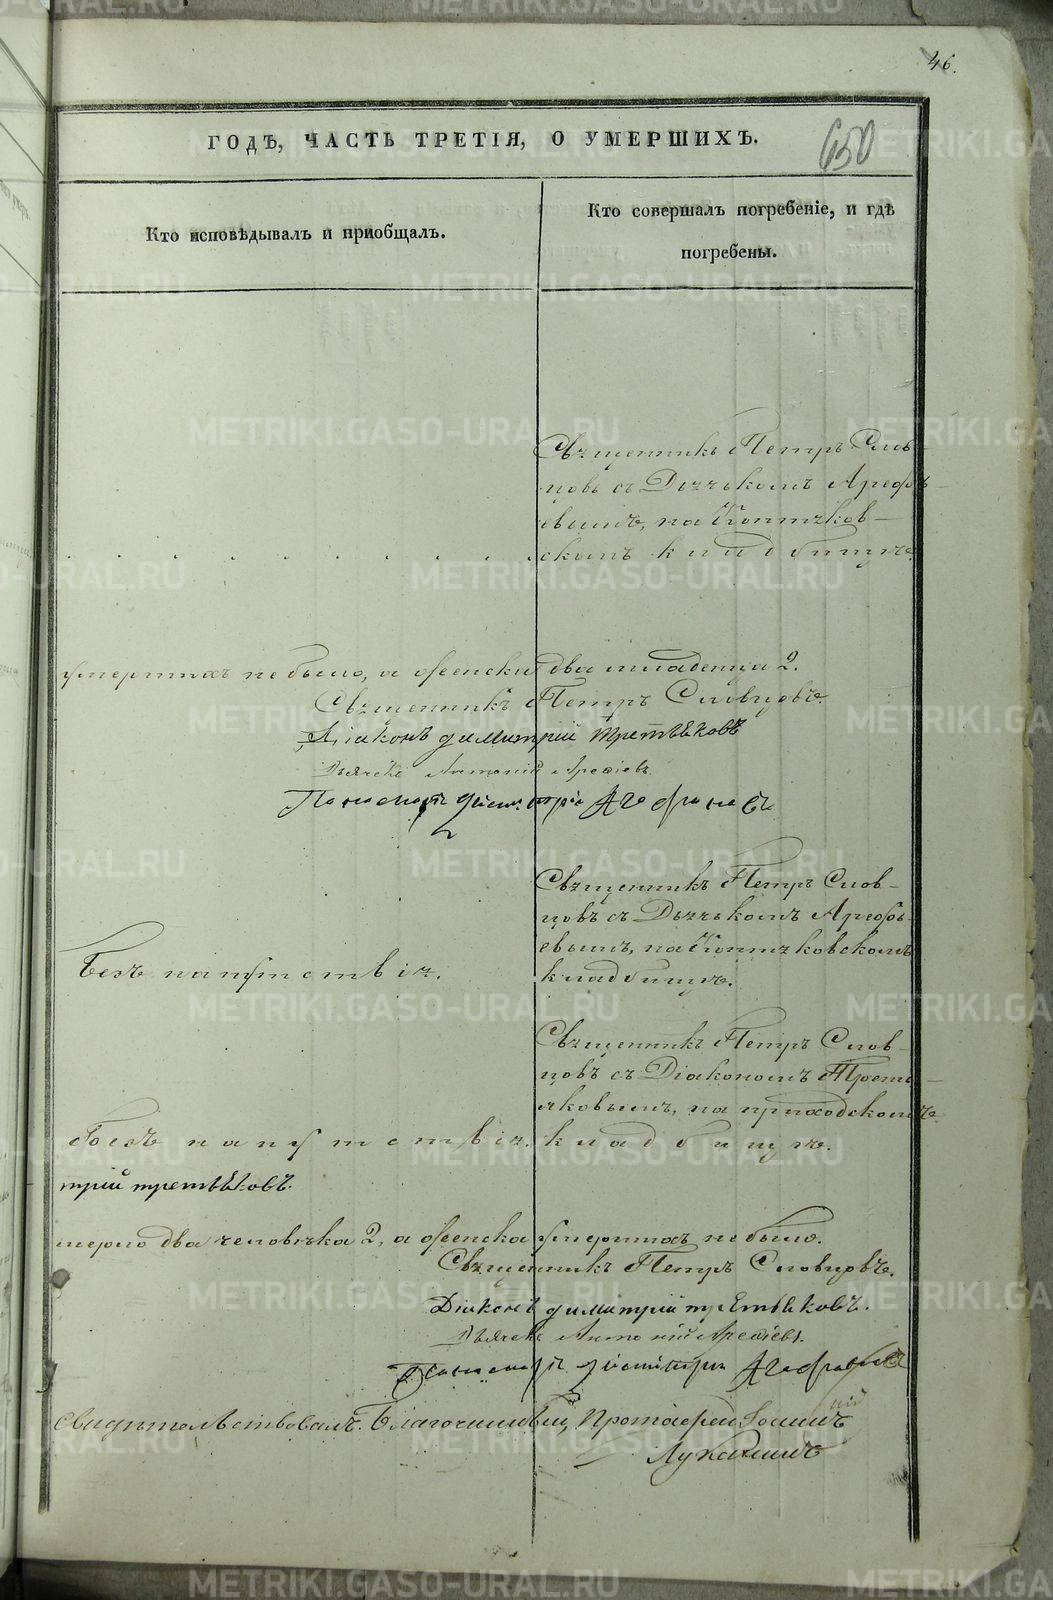 46.
ГОДЪ, ЧАСТЬ ТРЕТІЯ, О УМЕРШИХЪ.
650
Кто исповѣдывалъ и пріобщалъ.
Кто совершалъ погребеніе, и гдѣ
погребены.
Священникъ Петръ Слов-
цовъ съ Дьячькомъ Арефь-
евымъ, на Коптяков-
скомъ кладбищѣ.
умершихъ небыло, а женска два младенца 2.
Священникъ Петръ Словцовъ.
Діаконъ димитрій третьяковъ
Дьячекъ Антоній Арефіевъ
Пономарь
Священникъ Петръ Слов-
цовъ съ Дьячькомъ Арефь-
евымъ, на Коптяковскомъ
Безъ напутствія.
кладбищѣ.
Священникъ Петръ Слов-
цовъ съ Діакономъ Треть-
яковымъ, на приходскомъ
Безъ напутствія.
кладбищѣ.
трій третьяковъ.
мерло два человѣка 2, а женска умершихъ небыло.
Священникъ Петръ Словцовъ.
Діаконъ димитрій третьяковъ.
Дьячекъ Антоній Арефіевъ.
Пономарь
Свидѣтельствовалъ Благочинный, Протоіерей Іоаннъ
Лукинъ
METRIKI.GASO-URAL.RU